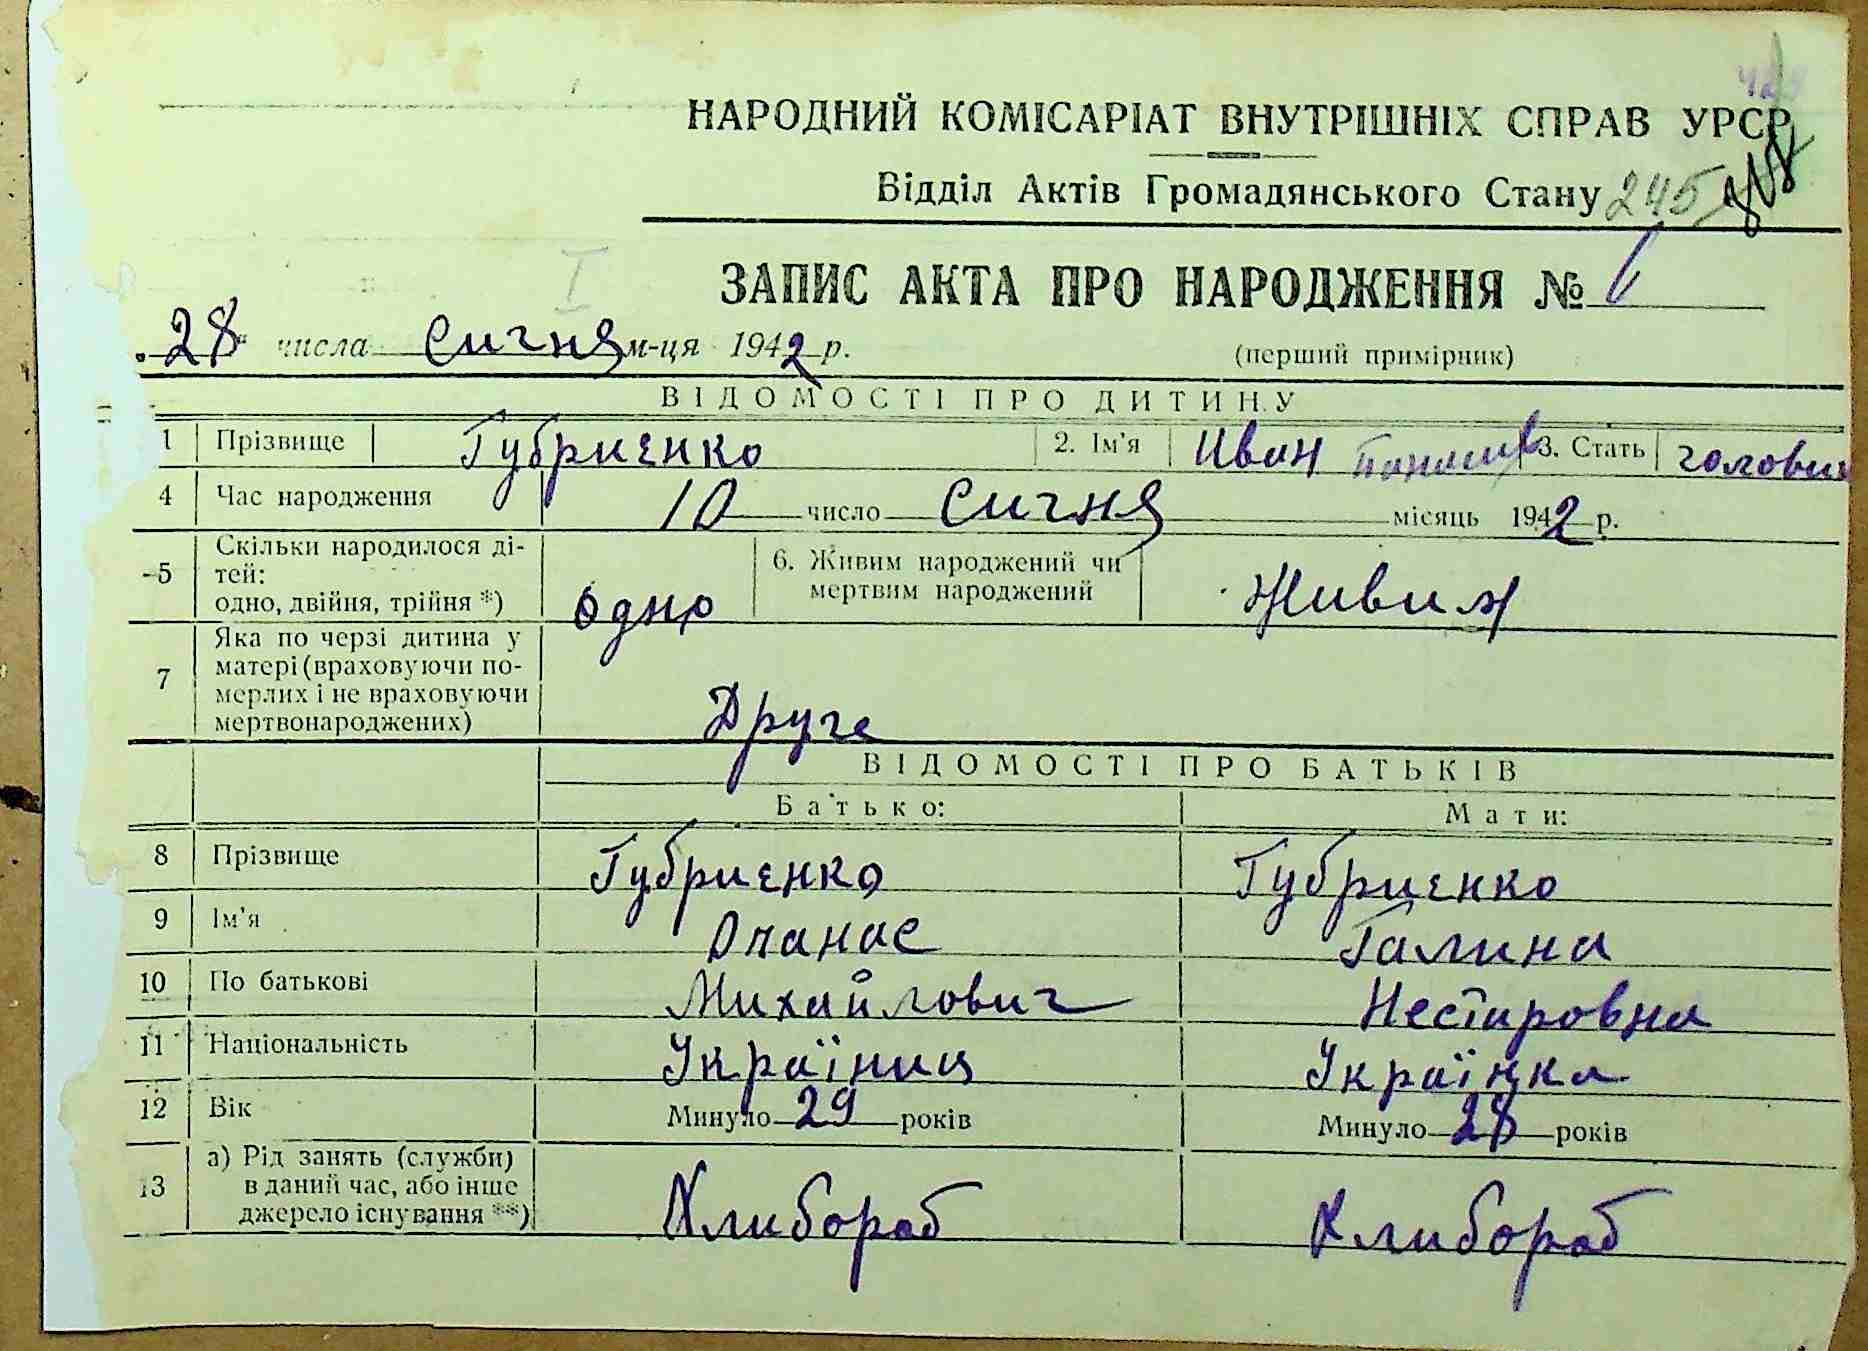 НАРОДНИЙ КОМІСАРІАТ ВНУТРІШНІХ СПРАВ УРСР
Відділ Актів Громадянського Стану 245
I
ЗАПИС АКТА ПРО НАРОДЖЕННЯ № 6
28 числа сигня м-ця 1942 р. (перший примірник)
ВІДОМОСТІ ПРО ДИТИНУ
1 Прізвище Губриенко 2. Ім'я Иван 3. Стать
4 Час народження 10 число сигня місяць 1942 р.
5 Скільки народилося ді-
тей:
одно, двійня, трійня *) одно 6. Живим народжений чи
мертвим народжений Живим
7 Яка по черзі дитина у
матері (враховуючи по-
мерлих і не враховуючи
мертвонароджених) Друге
ВІДОМОСТІ ПРО БАТЬКІВ
Батько: Мати:
8 Прізвище Губриенко Губриенко
9 Ім'я Опанас Галина
10 По батькові Михайлович Нестировна
11 Національність Україниц Українка
12 Вік Минуло 29 років Минуло 28 років
13 а) Рід занять (служби)
в даний час, або інше
джерело існування **) Хлибороб Хлибороб